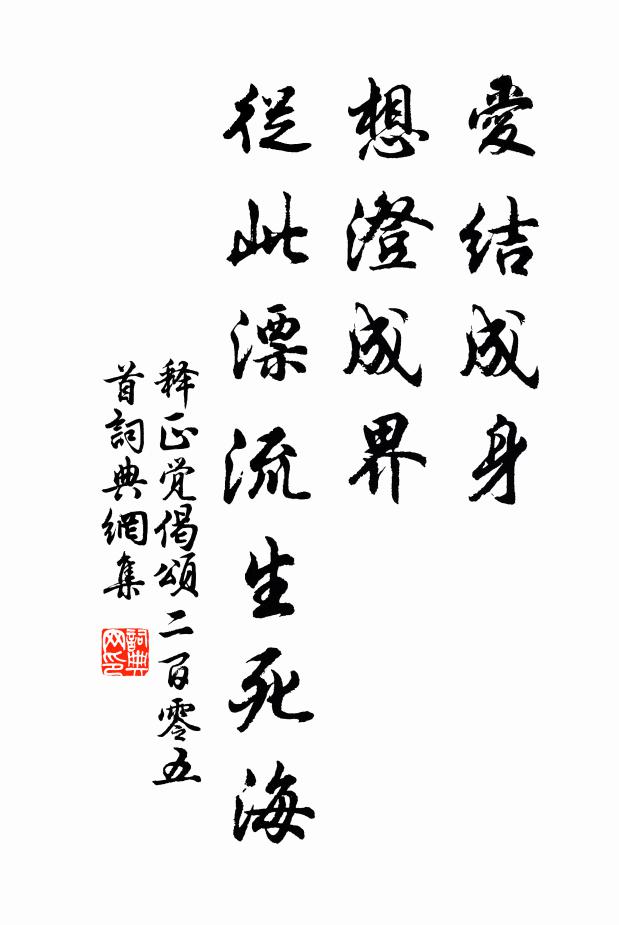 愛结成身
想澄成界
從此漂流生死海
释正覺偈頌二百零五
首詞典網集
詞典
网印